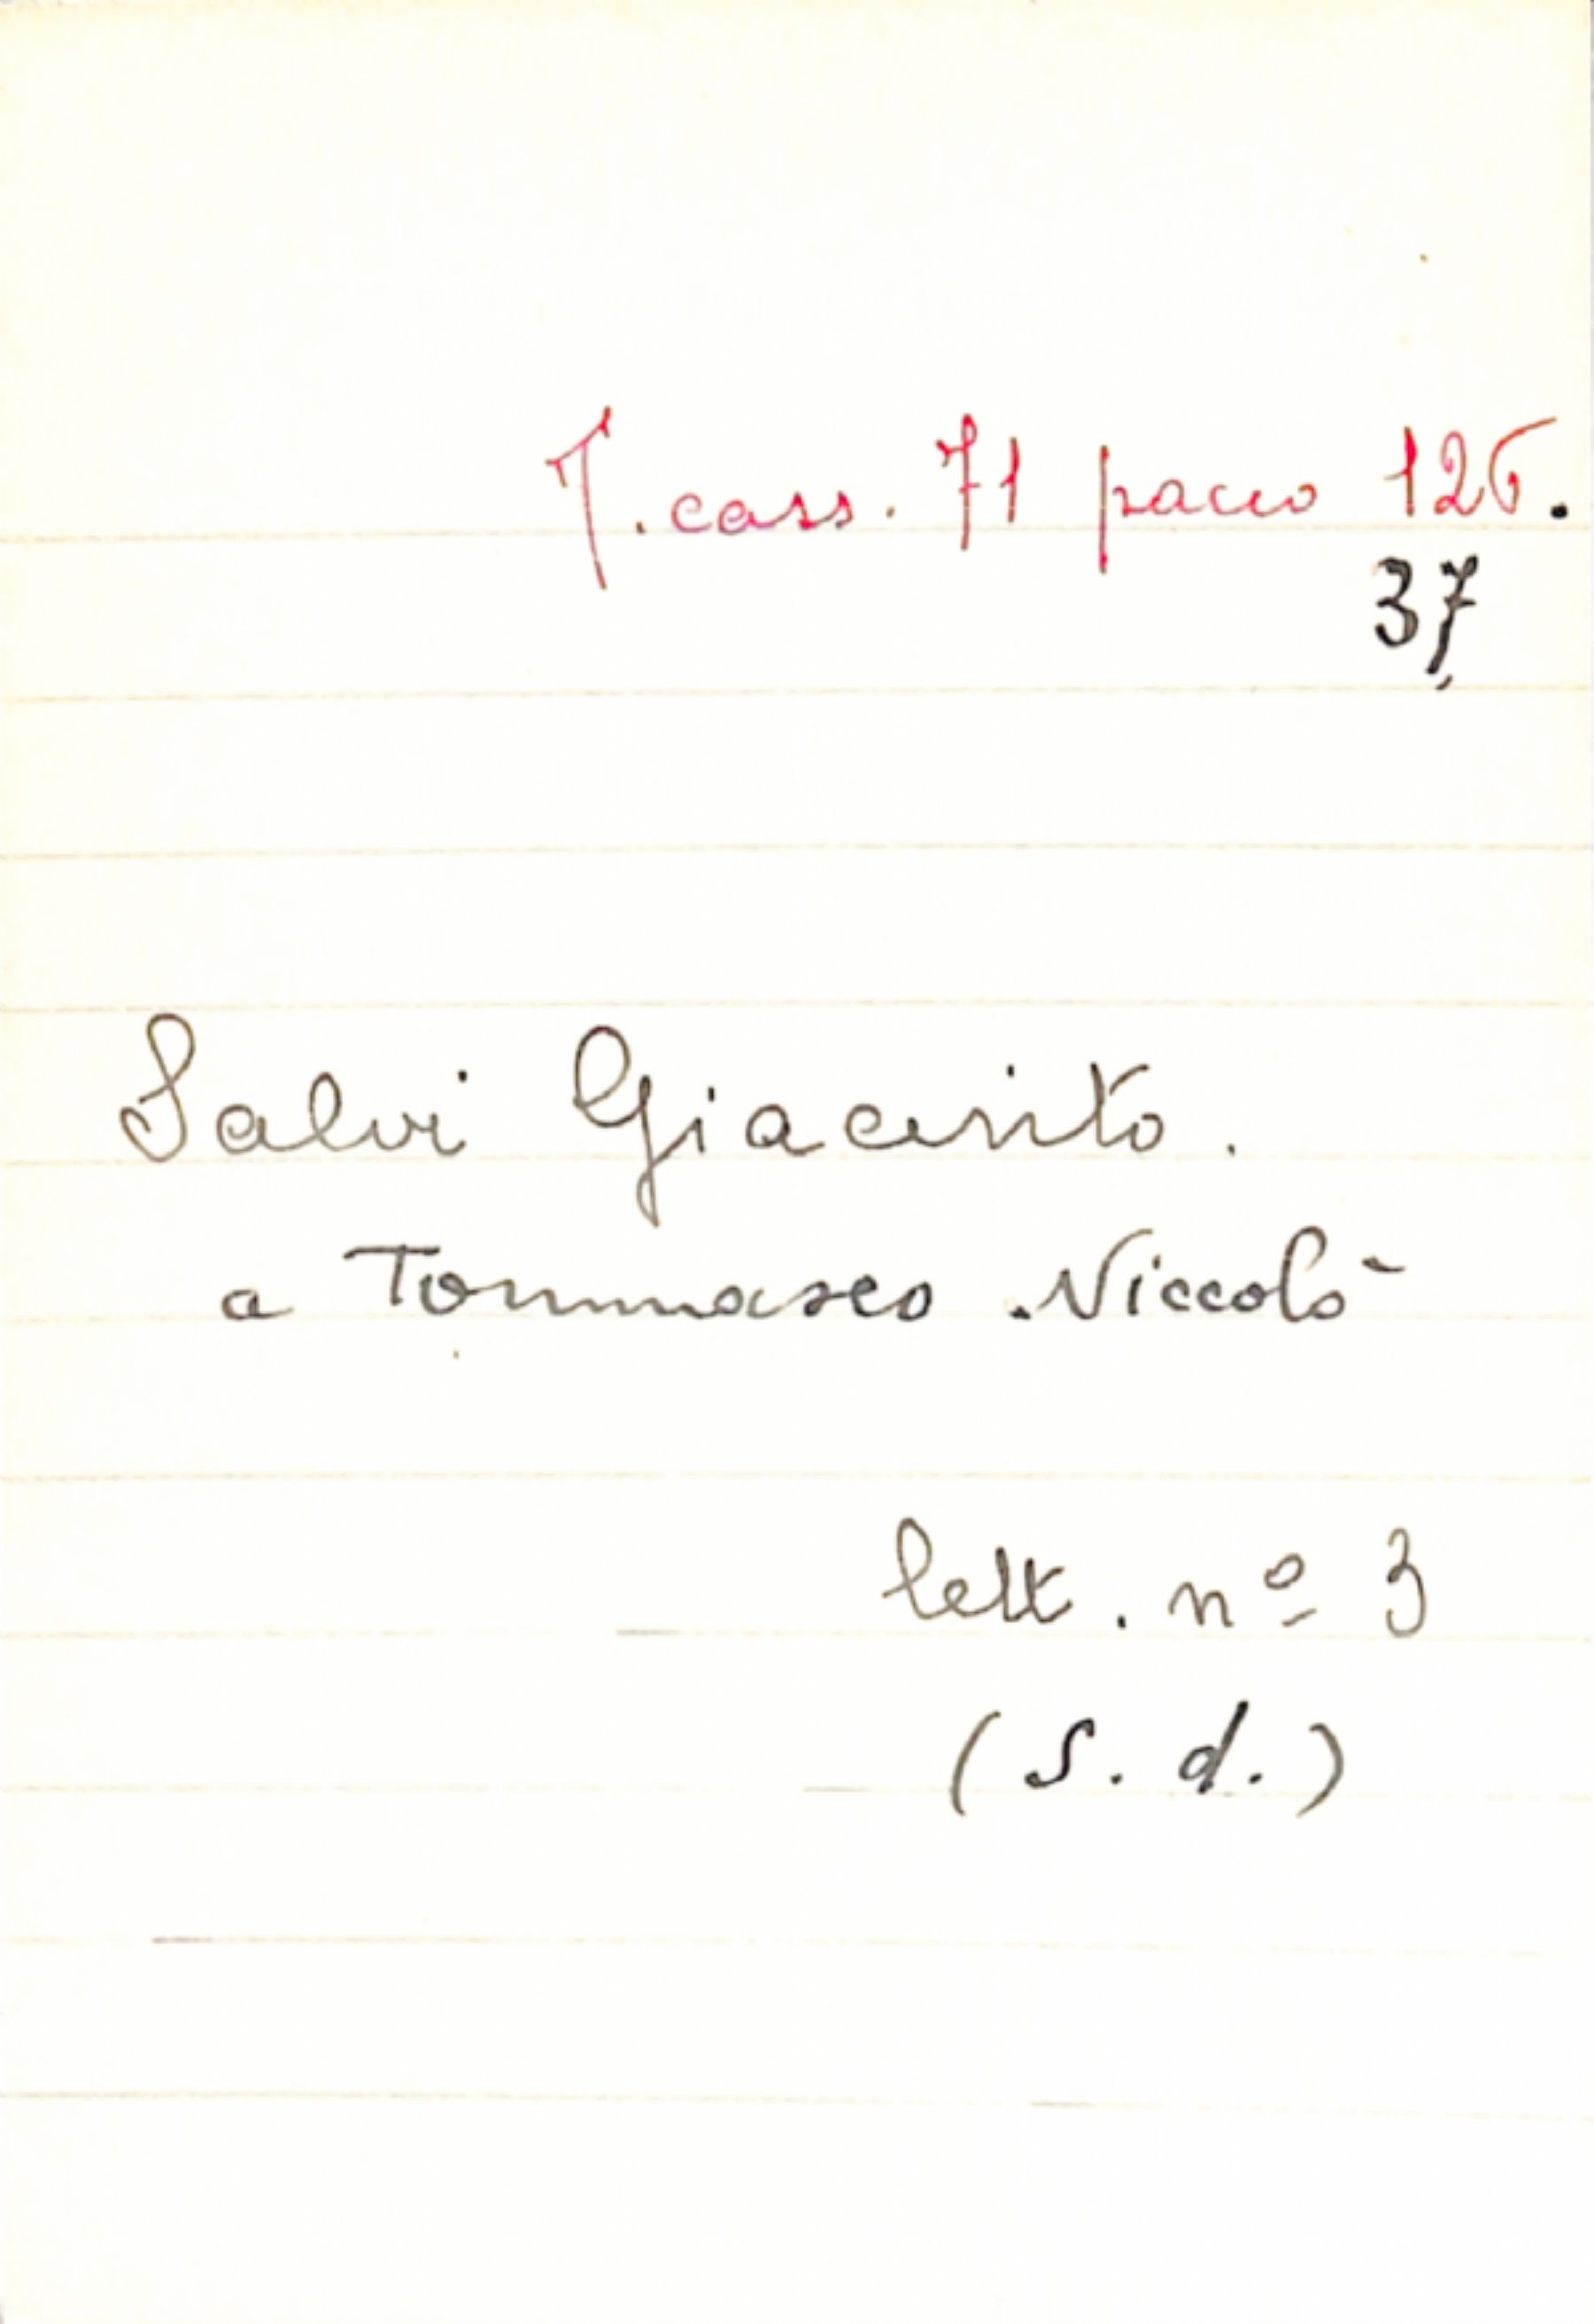 T. cass. 71 pacco 126.
37,
Salvi Giacinto.
a Tommaseo Niccolò
lett. nº 3
(s. d.)